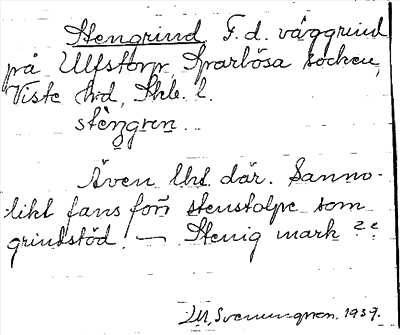 Stengrind F. d. väggrind
på Ulfstorp, Sparlösa socken,
Viste hrd, Skb. l.
stèngren.
Även lht där. Sanno-
likt fans förr stenstolpe som
grindstöd. — Stenig mark ??
1937.